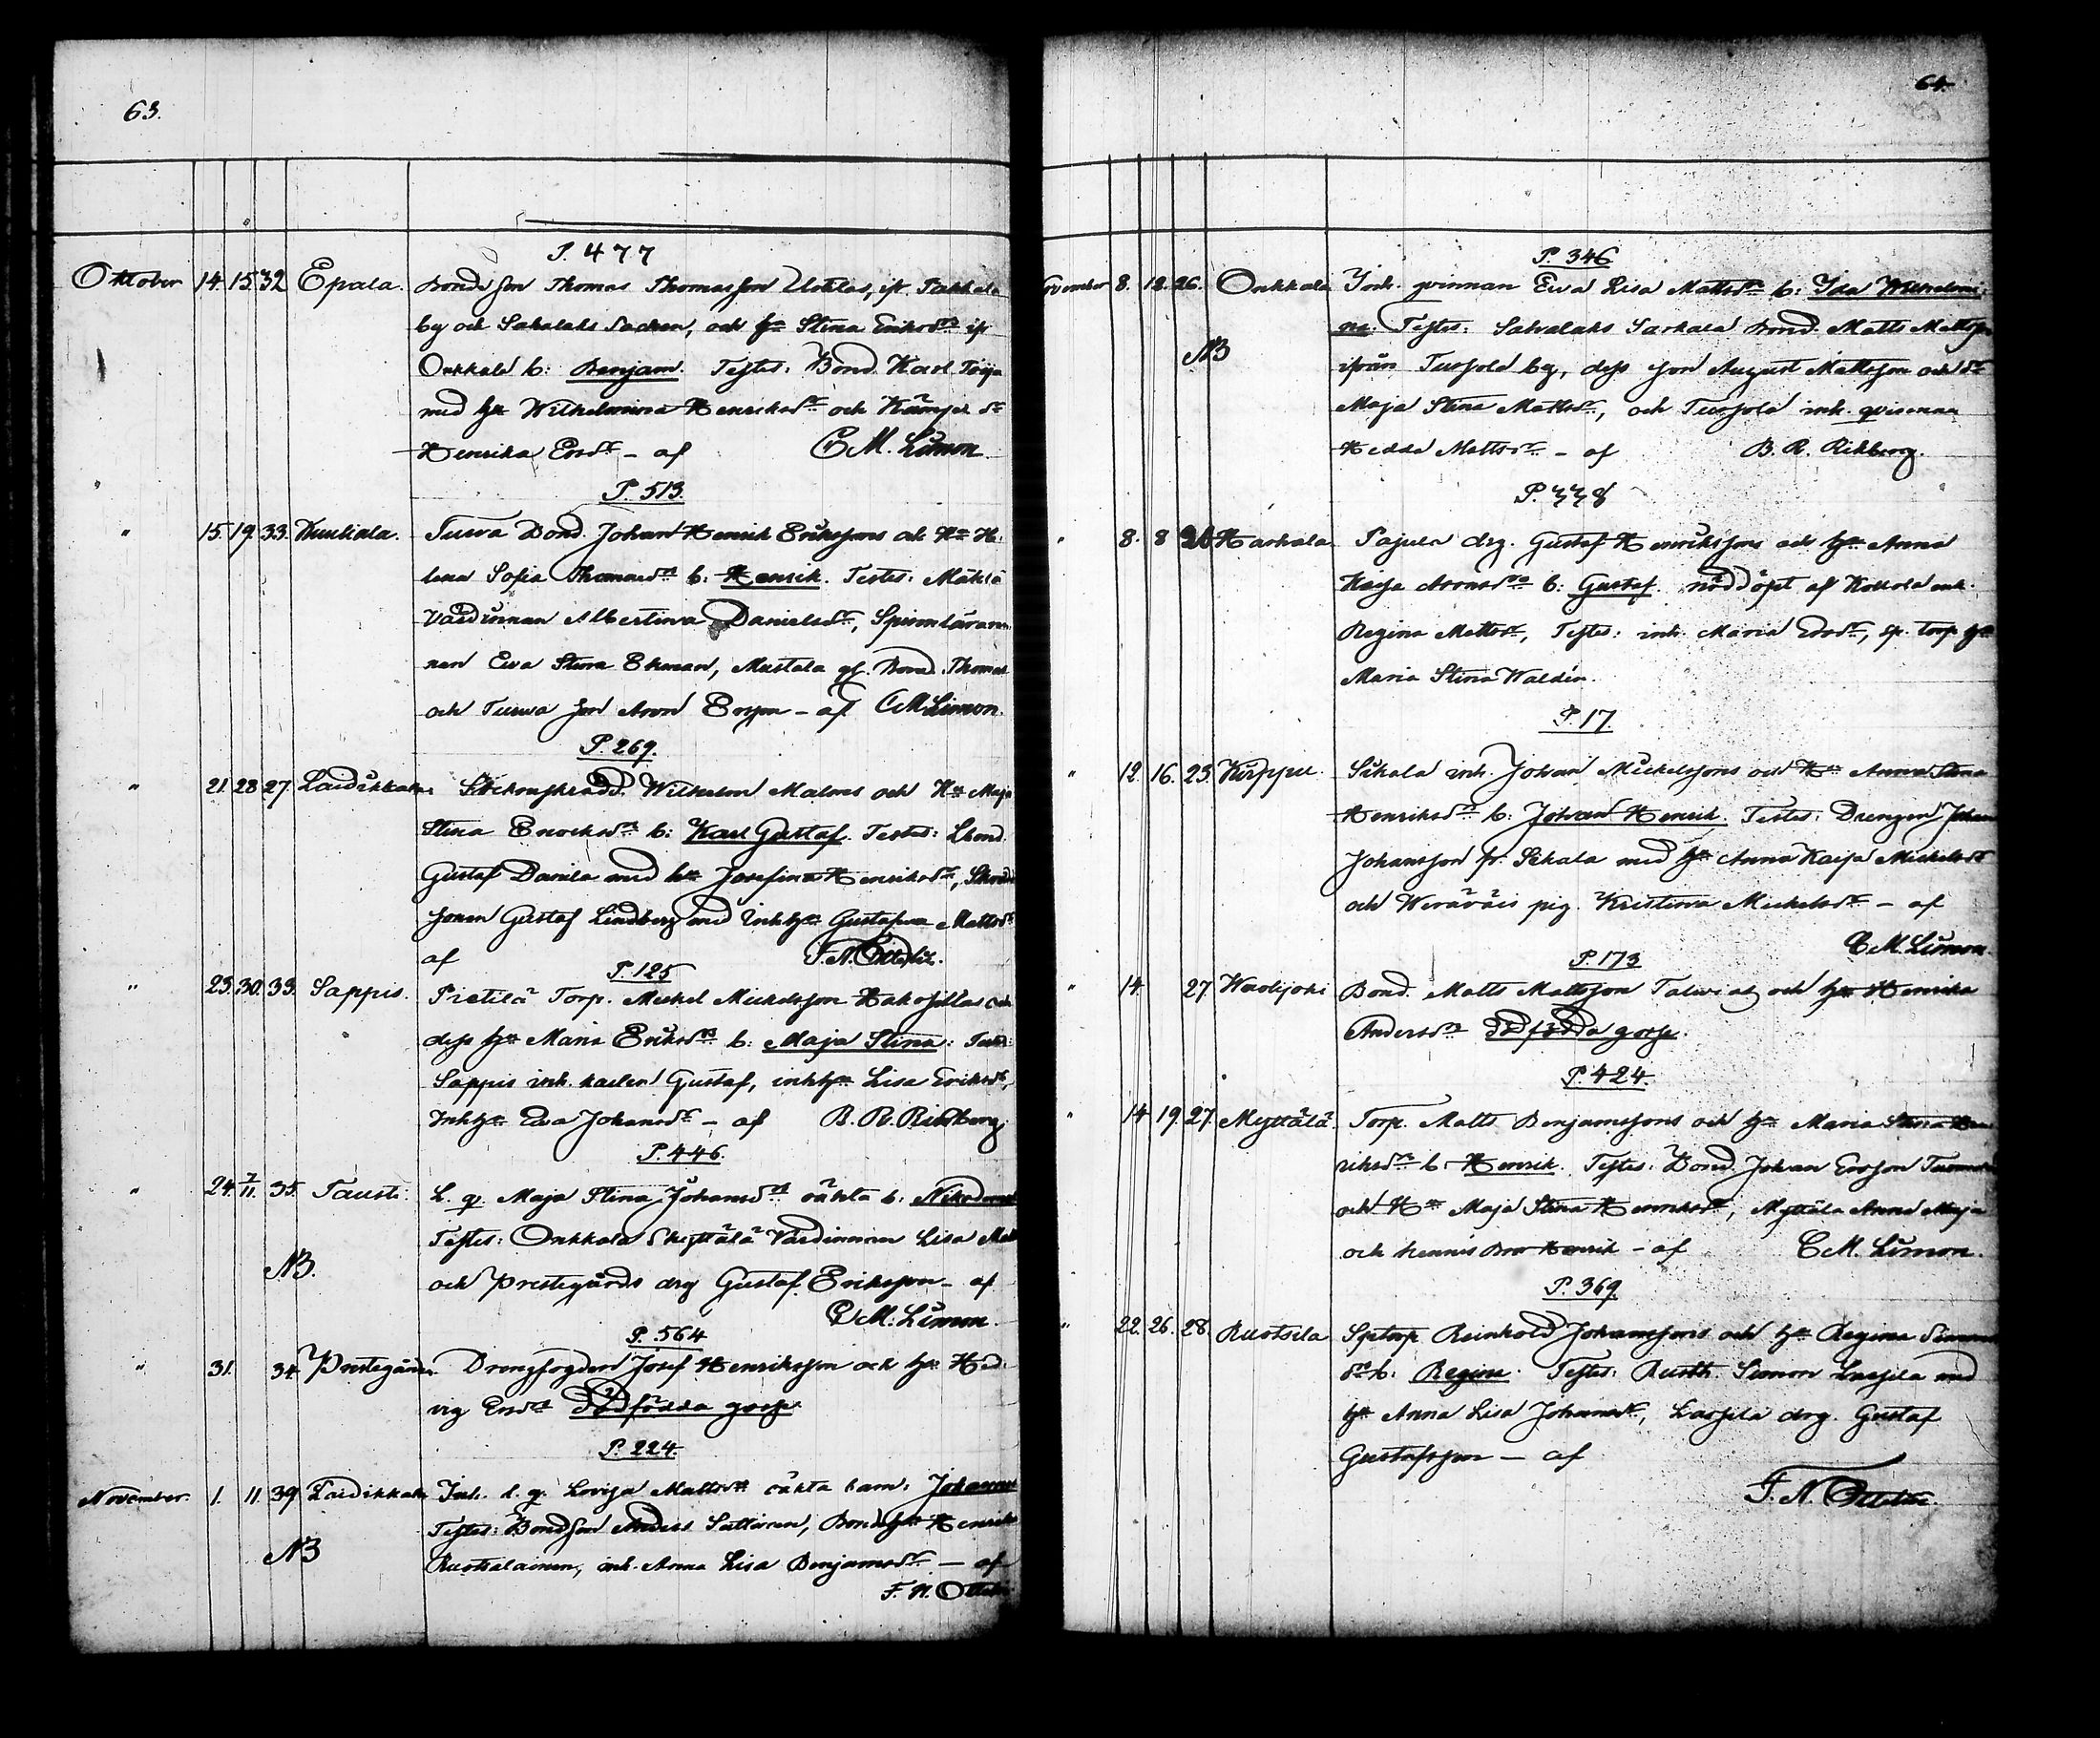 63.
P. 477
Oktober 14. 15. 32 Epala. Bonde son Thomas Thomasson Uotilas, ifr.
by och Sakalaks Socken, och hu Stina Eriksdr ifr
Onkkala b: Benjam. Testes: Bond. Karl
med hu Wilhelmina Henriksdr och dr
Henrika Ersdr – af C M. Limon
P. 513.
" 15. 19. 33. Kuuliala. Turva Bond. Johan Henrik Erikssons och Hu He
lena Sofia Thomasdr b: Henrik. Testes:
Värdinnan Albertina Danielsdr,
nan Eva Stina Ekman, Mustala gf. Bond. Thomas
och Turva son Aron Ersson – af C M Limon.
P. 269.
" 21. 28. 27. Laidikkala Wilhelm Malms och Hu Maja
Stina Enoksdr b: Karl Gustaf. Testes:
Gustaf Danila med hu Josefina Henriksdr,
sonen Gustaf Lindberg med Inhhu Gustafva Mattsdr
af F. N.
P. 125
" 23. 30. 33. Sappis. Pietilä Torp. Mickel Mickelsson och
dess hu Maria Eriksdr b: Maja Stina. Testes:
Sappis inh. karlen Gustaf, inhhu Lisa Eriksdr,
Inhhu Eva Johansdr – af B. R. Rikberg.
P. 446.
" 24. 7/11. 35. Tausti. L. q. Maja Stina Johansdr oäkta b:
Testes: Onkkala Skyttälä Värdinnan Lisa
NB. och Prestegårds drg Gustaf Eriksson – af
C M. Limon.
P. 564
" 31. 34. Prestegården. Drengfogden Josef Henriksson och hu Hed
vig Ersdr Dödfödda gosse.
P. 224.
November. 1. 11. 39. Laidikkala Inh. l. q. Lovisa Mattsdr oäkta barn: Johannes
Testes: Bondson Anders Suttinen, Bondhu
NB Ruotsalainen, inh. Anna Lisa Benjamsdr – af
F. N.
64.
P. 346
November 8. 12. 26. Onkkala Inh. qvinnan Eva Lisa Mattsdr b: Ida Wilhelmi
na. Testes: Sahalaks Sarkala Bond. Matts Mattsson
NB ifrån by, dess son August Mattsson och dr
Maja Stina Mattsdr, och inh. qvinnan
Hedda Mattsdr – af B. R. Rikberg.
P. 338
" 8. 8 26 Harhala Pajula drg. Gustaf Henrikssons och hu Anna
Kaija Aronsdr b: Gustaf. nöddöpt af inh.
Regina Mattsdr, Testes: inh. Maria Ersdr, sp. torp. hu
Maria Stina Waldén.
P. 17.
" 12. 16. 23. Kirppu. Sikala inh. Johan Mickelssons och Hu Anna Stina
Henriksdr b: Johan Henrik. Testes: Drengen Johan
Johansson fr. Sikala med hu Anna Kaisa Mickelsdr
och pig. Kristina Mickelsdr – af
C M. Limon.
P. 173
" 14. 27. Bond. Matts Mattsson och hu Henrika
Andersdr Dödfödda gosse.
P. 424.
" 14 19. 27. Myttälä. Torp. Matts Benjamssons och hu Maria Stina Hen
riksdr b: Henrik. Testes: Bond. Johan Ersson
och Hu Maja Stina Henriksdr, Myttälä Anna Maja
och hennes Bror Henrik – af C M. Limon.
P. 369.
" 22. 26. 28. Ruotsila Sptorp. Reinhold Johanssons och hu Regina
dr b: Regina. Testes: Rusth. Simon Lassila med
hu Anna Lisa Johansdr, Lassila drg. Gustaf
Gustafsson – af
F. N.